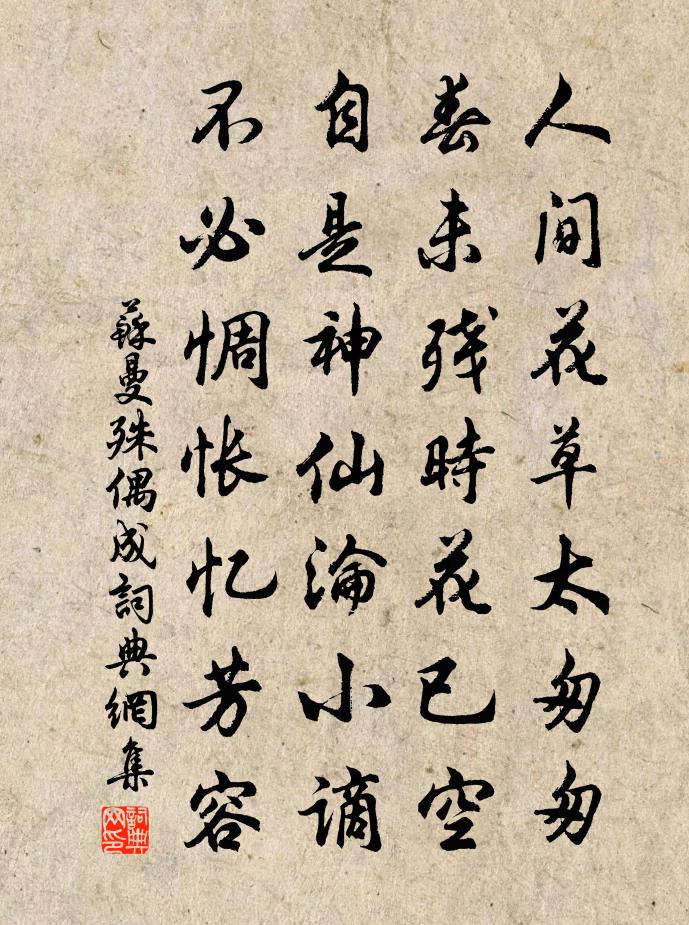 人间花草太匆匆
春未残時花已空
自是神仙淪小謫
不必惆怅忆芳容
蘇曼殊偶成詞典網集
詞典网印